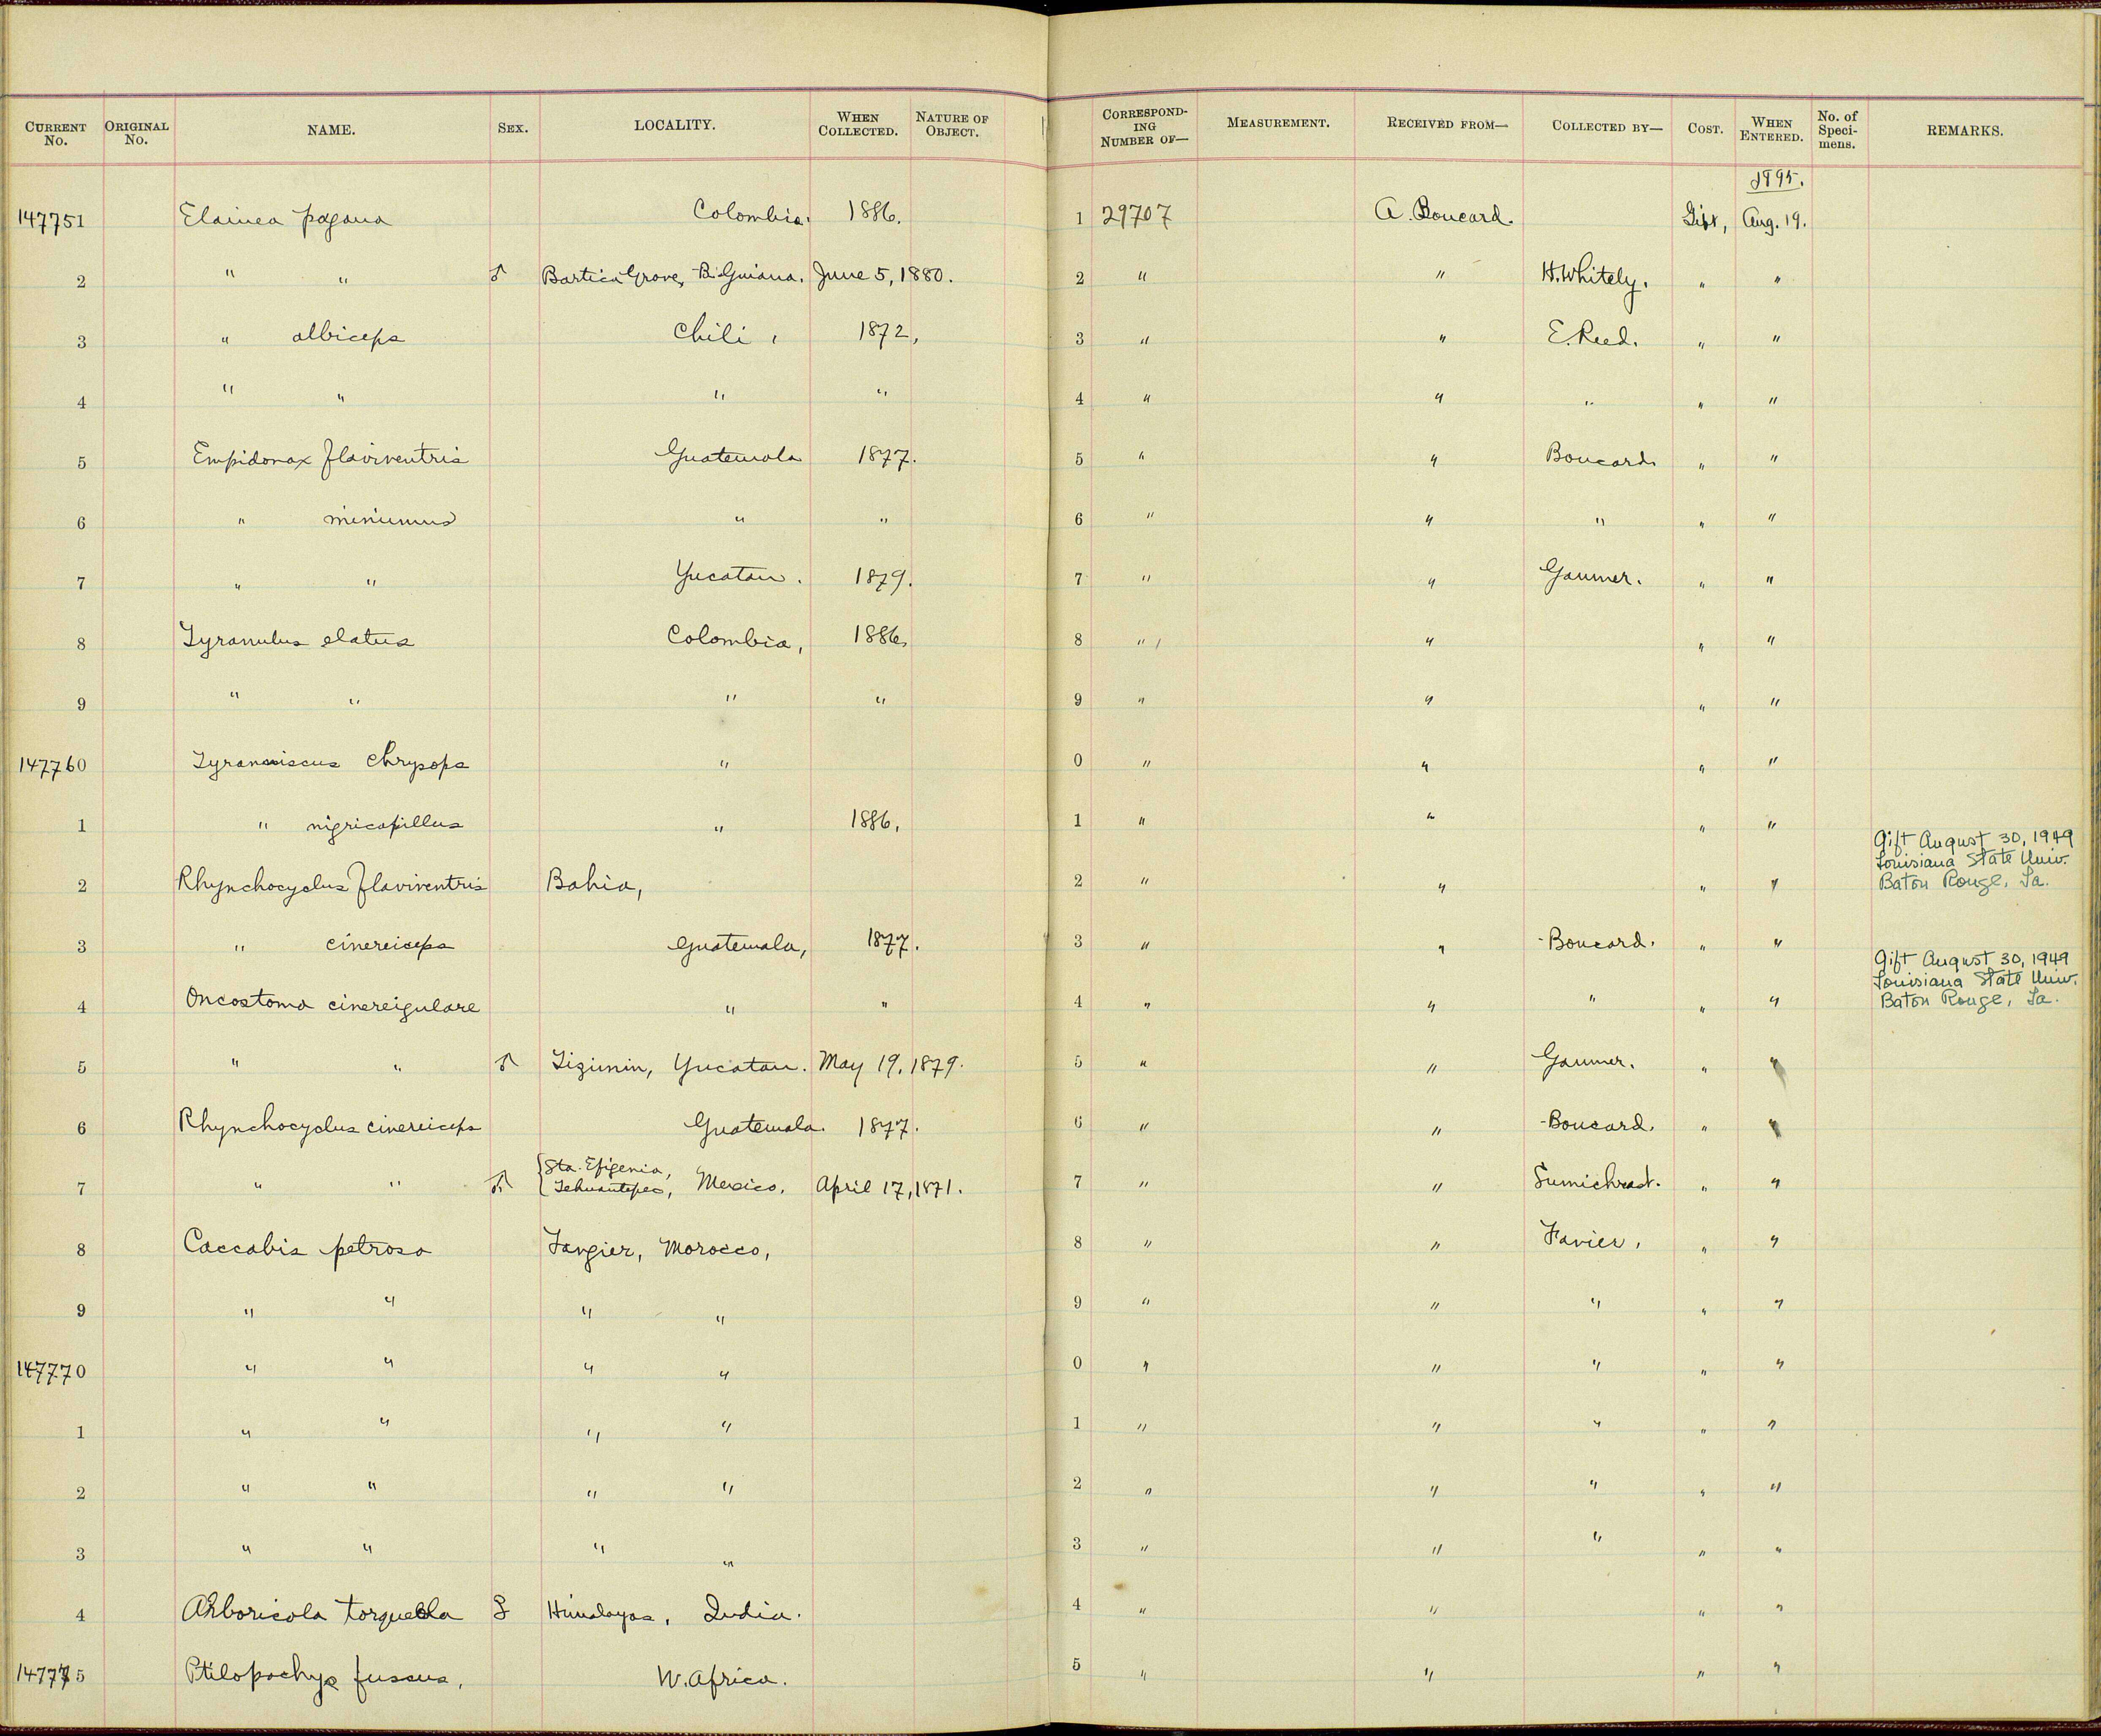 CURRENT No. ORIGINAL No. NAME. SEX. LOCALITY. WHEN COLLECTED. NATURE OF OBJECT. CORRESPONDING NUMBER OF— MEASUREMENT. RECEIVED FROM— COLLECTED BY— COST. WHEN ENTERED. No. of Specimens. REMARKS.
1895.
147751 Elainea pagana Colombia. 1886. 1 29707 A. Boucard. Gift, Aug. 19.
2 " " ♂ Bartica Grove, Br. Guiana. June 5, 1880. 2 " " H. Whitely. " "
3 " albiceps Chili, 1872, 3 " " E. Reed. " "
4 " " " " 4 " " " " "
5 Empidonax flaviventris Guatemala 1877. 5 " " Boucard. " "
6 " minimus " " 6 " " " " "
7 " " Yucatan. 1879. 7 " " Gaumer. " "
8 Tyranulus elatus Colombia, 1886. 8 " " " "
9 " " " " 9 " " " "
147760 Tyranniscus chrysops " 0 " " " "
1 " nigricapillus " 1886. 1 " " " "
2 Rhynchocyclus flaviventris Bahia, 2 " " " " Gift August 30, 1949
Louisiana State Univ.
Baton Rouge, La.
3 " cinereiceps Guatemala, 1877. 3 " " Boucard. " "
4 Oncostoma cinereigulare " " 4 " " " " " Gift August 30, 1949
Louisiana State Univ.
Baton Rouge, La.
5 " " ♂ Tizimin, Yucatan. May 19, 1879. 5 " " Gaumer. " "
6 Rhynchocyclus cinereiceps Guatemala. 1877. 6 " " Boucard. " "
7 " " ♂ {Sta. Efigenia, Tehuantepec, Mexico. April 17, 1871. 7 " " Sumichrast. " "
8 Caccabis petrosa Tangier, Morocco, 8 " " Favier, " "
9 " " " " 9 " " " " "
147770 " " " " 0 " " " " "
1 " " " " 1 " " " " "
2 " " " " 2 " " " " "
3 " " " " 3 " " " " "
4 Arboricola torqueola Himalayas, India. 4 " " " "
147775 Ptilopachys fuscus, W. Africa. 5 " " " "